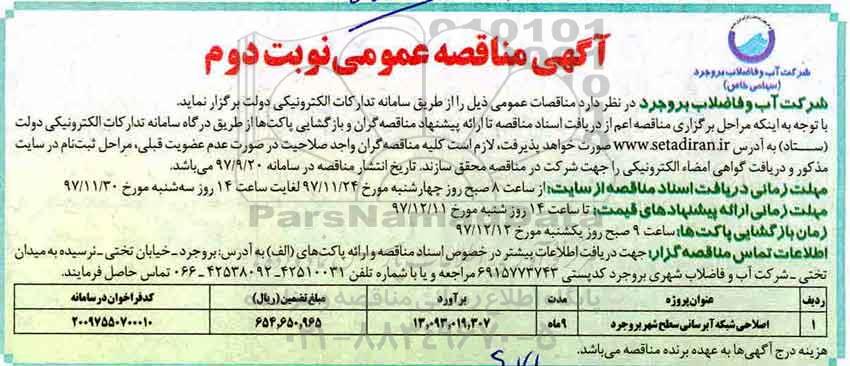 آگهی مناقصه عمومی نوبت دوم
شرکت آب و فاضلاب بروجرد
(سهامی خاص)
شرکت آب و فاضلاب بروجرد در نظر دارد مناقصات عمومی ذیل را از طریق سامانه تدارکات الکترونیکی دولت برگزار نماید.
با توجه به اینکه مراحل برگزاری مناقصه اعم از دریافت اسناد مناقصه تا ارائه پیشنهاد مناقصه گران و بازگشایی پاکت‌ها از طریق درگاه سامانه تدارکات الکترونیکی دولت
(ستاد) به آدرس www.setadiran.ir صورت خواهد پذیرفت، لازم است کلیه مناقصه گران واجد صلاحیت در صورت عدم عضویت قبلی، مراحل ثبت‌نام در سایت
مذکور و دریافت گواهی امضاء الکترونیکی را جهت شرکت در مناقصه محقق سازند. تاریخ انتشار مناقصه در سامانه ۹۷/۹/۲۰ می‌باشد.
مهلت زمانی دریافت اسناد مناقصه از سایت: از ساعت ۸ صبح روز چهارشنبه مورخ ۹۷/۱۱/۲۴ لغایت ساعت ۱۴ روز سه‌شنبه مورخ ۹۷/۱۱/۳۰
مهلت زمانی ارائه پیشنهادهای قیمت: تا ساعت ۱۴ روز شنبه مورخ ۹۷/۱۲/۱۱
زمان بازگشایی پاکت‌ها: ساعت ۹ صبح روز یکشنبه مورخ ۹۷/۱۲/۱۲
اطلاعات تماس مناقصه گزار: جهت دریافت اطلاعات بیشتر در خصوص اسناد مناقصه و ارائه پاکت‌های (الف) به آدرس: بروجرد ـ خیابان تختی ـ نرسیده به میدان
تختی ـ شرکت آب و فاضلاب شهری بروجرد کدپستی ۶۹۱۵۷۷۳۷۴۳ مراجعه و یا با شماره تلفن ۴۲۵۱۰۰۳۱ ـ ۴۲۵۳۸۰۹۲ ـ ۰۶۶ تماس حاصل فرمایند.
ردیف عنوان پروژه مدت برآورد مبلغ تضمین (ریال) کد فراخوان در سامانه
۱ اصلاحی شبکه آبرسانی سطح شهر بروجرد ۹ماه ۱۳,۰۹۳,۰۱۹,۳۰۷ ۶۵۴,۶۵۰,۹۶۵ ۲۰۰۹۷۵۵۰۷۰۰۰۱۰
هزینه درج آگهی‌ها به عهده برنده مناقصه می‌باشد.
ParsNamadData
پایگاه اطلاع رسانی مناقصه
۰۲۱-۸۸۳۴۹۶۷۰-۵